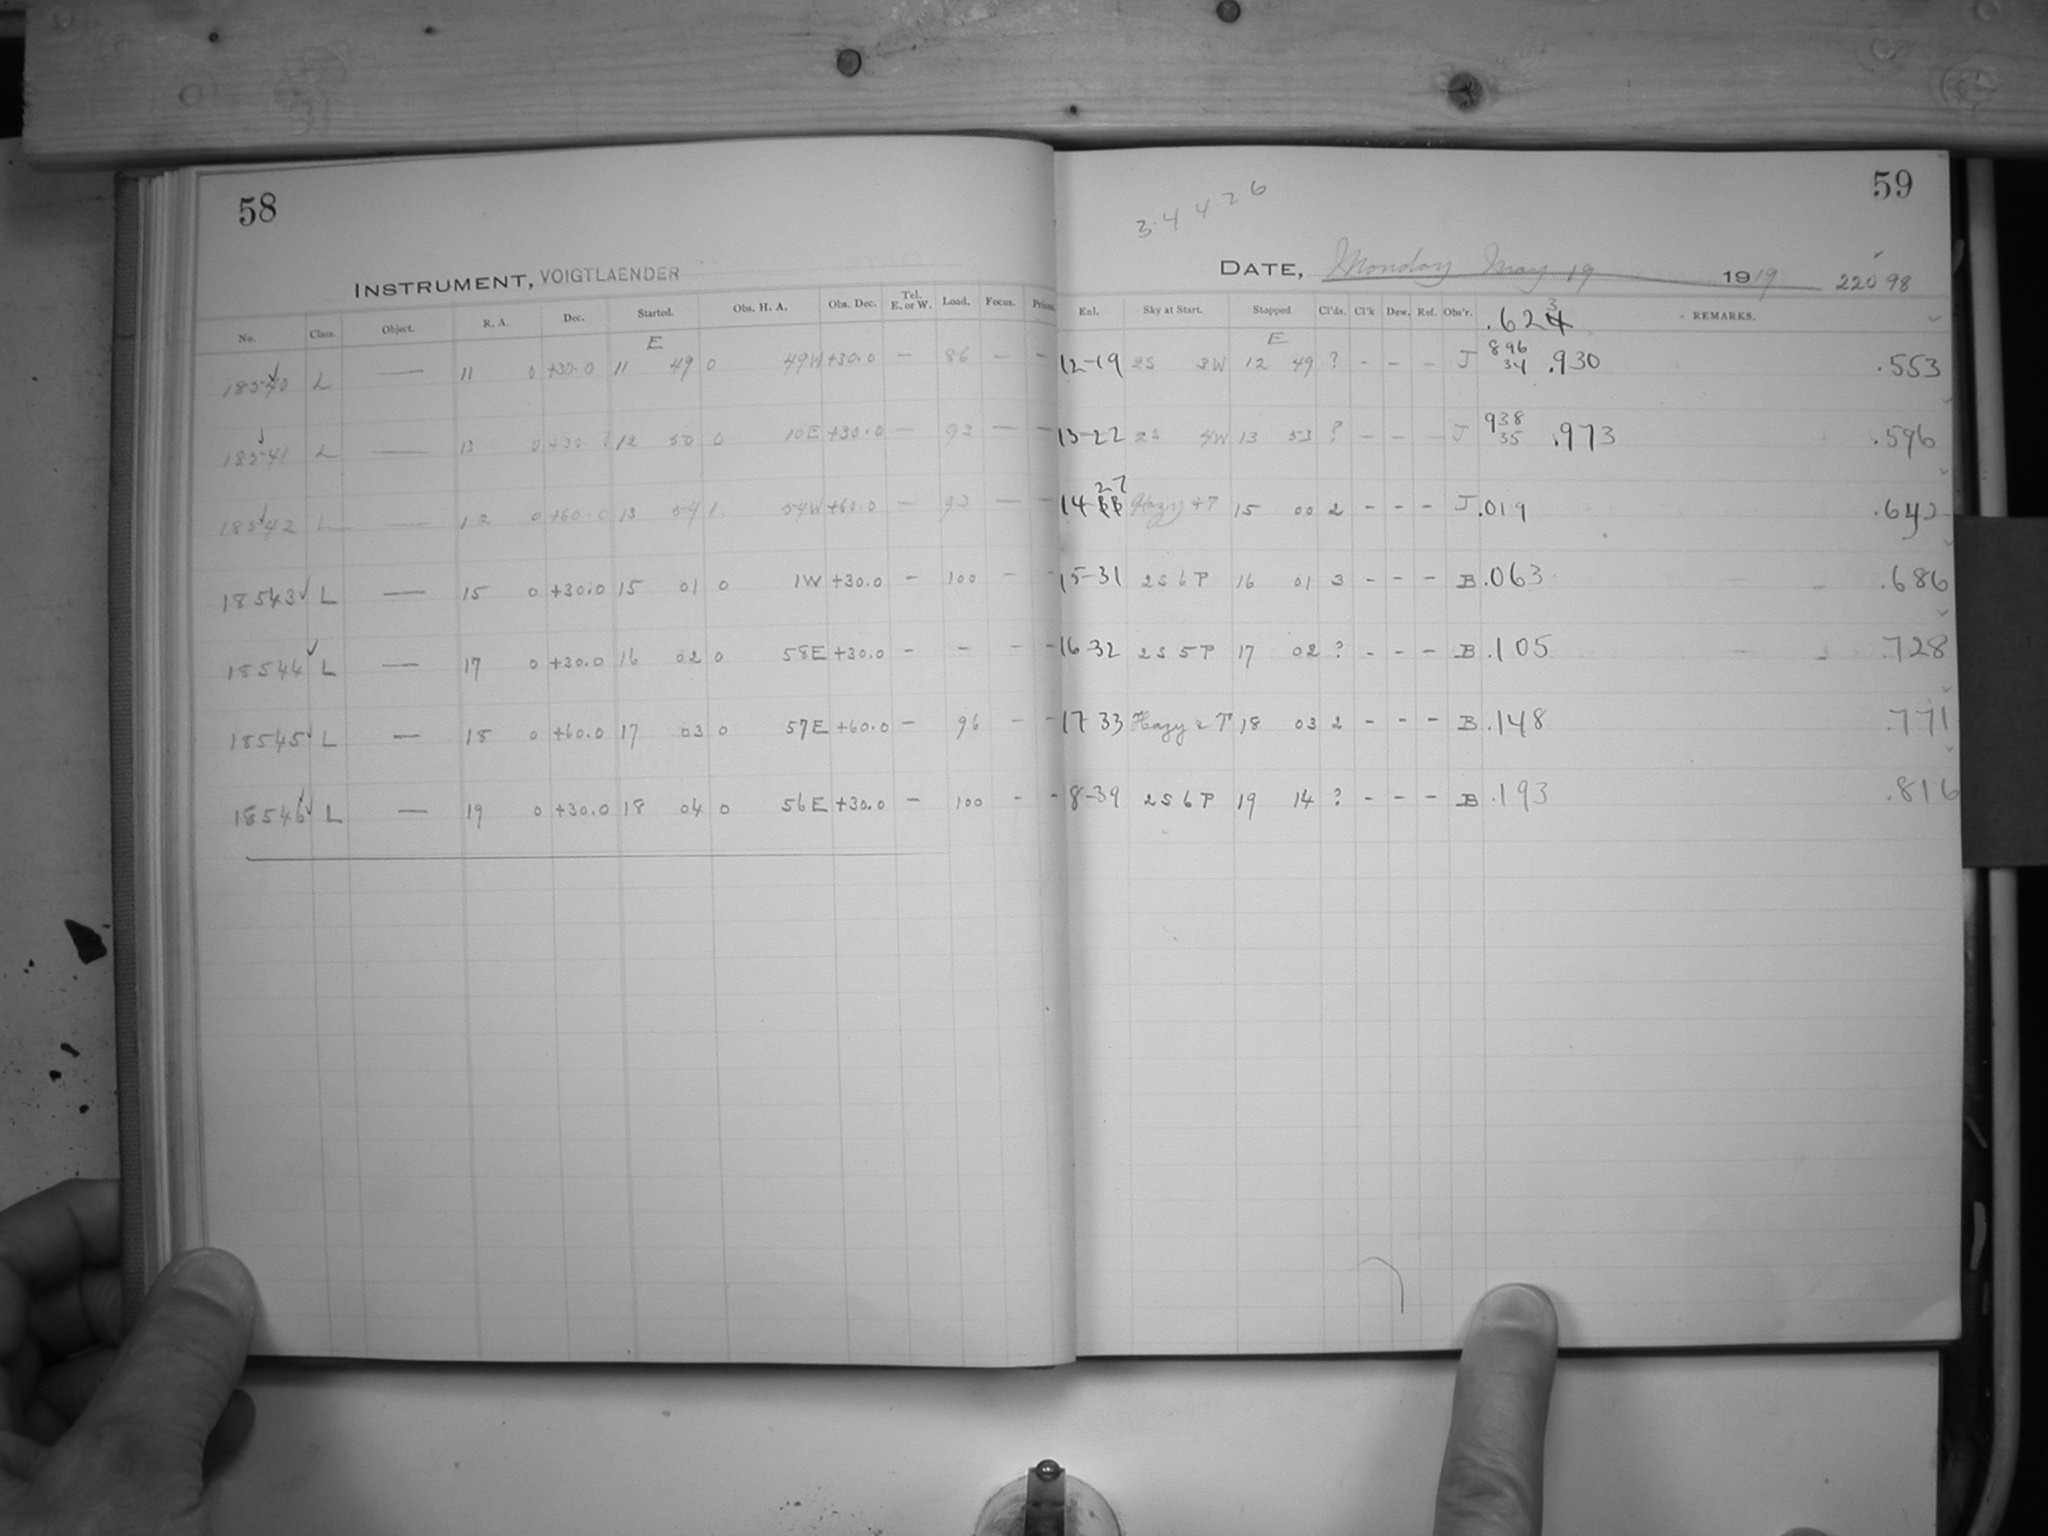 58
INSTRUMENT, VOIGTLAENDER
No. Class. Object. R. A. Dec. Started. Obs. H. A. Obs. Dec. Tel. E. or W. Load. Focus. Prism.
E
18540 L — 11 0 +30.0 11 49 0 49W +30.0 — 86 — —
18541 L — 13 0 +30.0 12 50 0 10E +30.0 — 93 — —
18542 L — 12 0 +60.0 13 54 1 54W +60.0 — 93 — —
18543 L — 15 0 +30.0 15 01 0 1W +30.0 - 100 - -
18544 L — 17 0 +30.0 16 02 0 58E +30.0 - - - -
18545 L — 18 0 +60.0 17 03 0 57E +60.0 - 96 - -
18546 L — 19 0 +30.0 18 04 0 56E +30.0 - 100 - -
59
34426
DATE, Monday May 19 1919 22098
Exl. Sky at Start. Stopped Cl'ds. Cl'k Dew. Ref. Obs'r. .623 REMARKS.
E
12-19 2S 3W 12 49 ? - - - J 896 34 .930 .553
13-22 2S 4W 13 53 ? - - - J 938 35 .973 .596
14 27 Hazy + T 15 00 2 - - - J .019 .642
15-31 2S 6P 16 01 3 - - - B .063 .686
16-32 2S 5P 17 02 ? - - - B .105 .728
17 33 Hazy & T 18 03 2 - - - B .148 .771
8-39 2S 6P 19 14 ? - - - B .193 .816